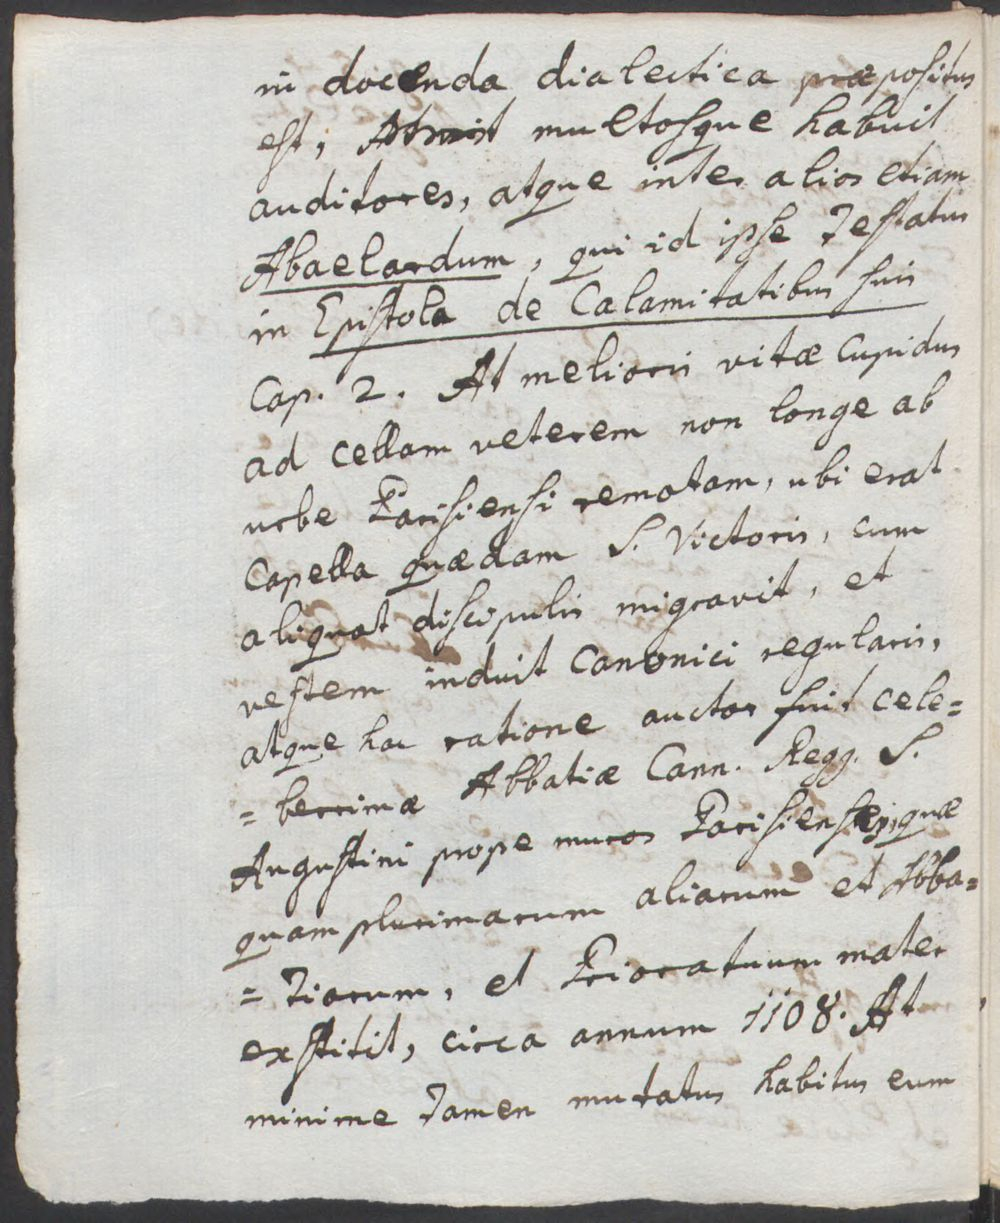 in docenda dialectica præpositus
est, multosque habuit
auditores, atque inter alios etiam
Abaelardum, qui id ipse Testatus
in Epistola de Calamitatibus suis
Cap. 2. At melioris vitæ Cupidus
ad cellam veterem non longe ab
urbe Parisiensi remotam, ubi erat
Capella quædam S. Victoris, cum
aliquot discipulis migravit, et
vestem induit Canonici regularis,
atque hac ratione auctor fuit cele=
= berrimæ Abbatiæ Cann. Regg. S.
Augustini prope muros Parisienses, quæ
quam plurimarum aliarum et Abba=
= Tiarum, et Prioratuum mater
exstitit, circa annum 1108. At
minime Tamen mutatus habitus eum